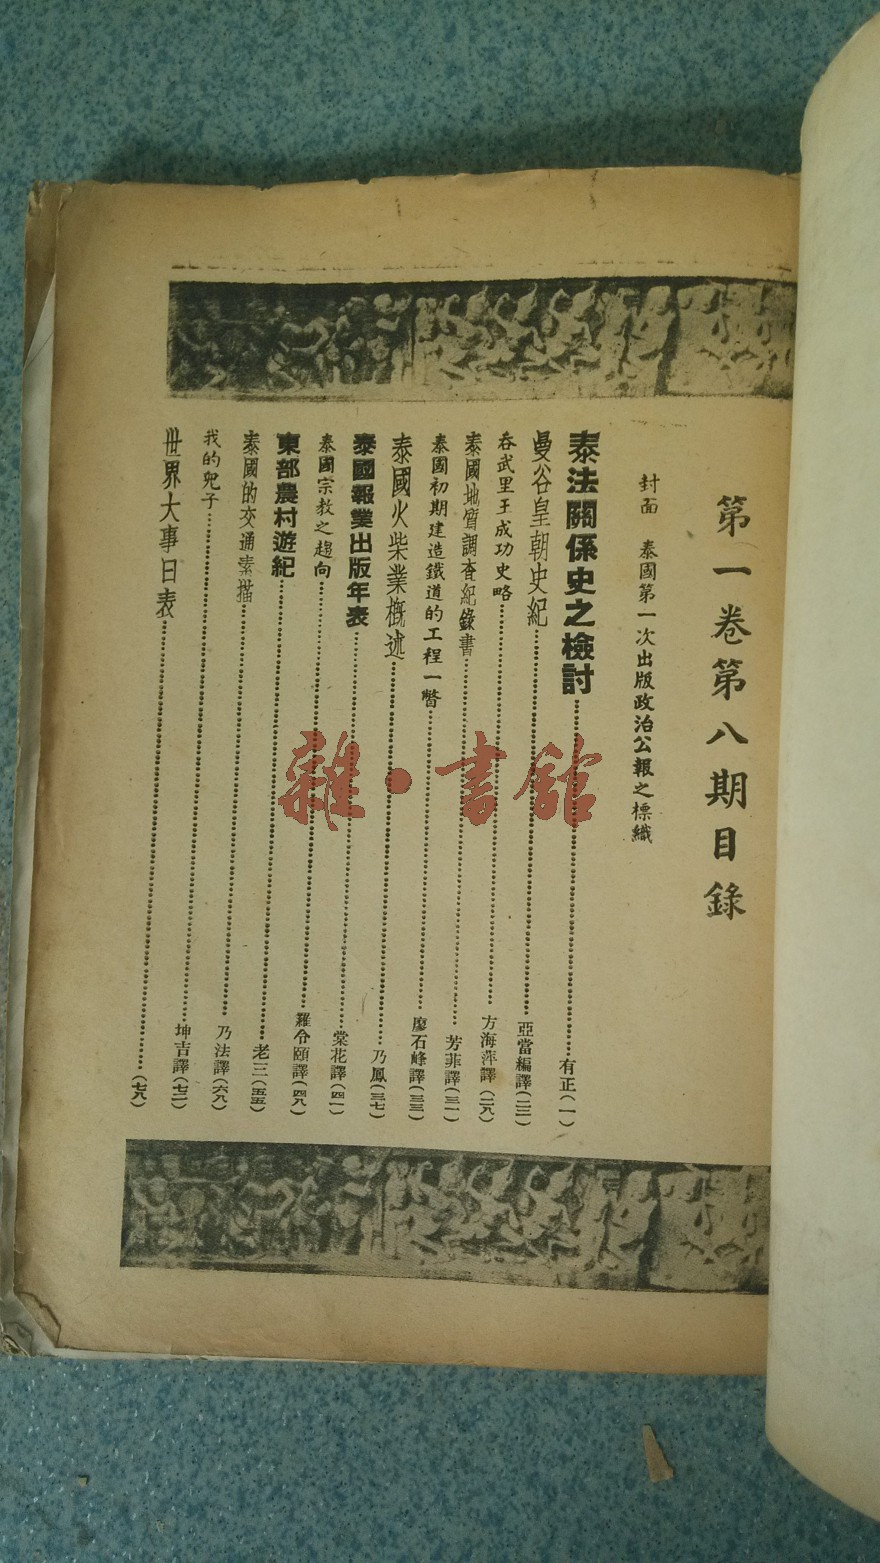 第一卷第八期目錄
封面　泰國第一次出版政治公報之標織
泰法關係史之檢討……有正(一)
曼谷皇朝史紀……亞當編譯(二三)
吞武里王成功史略……方海萍譯(二九)
泰國地質調查紀錄書……芳菲譯(三一)
泰國初期建造鐵道的工程一瞥……廖石峰譯(三三)
泰國火柴業概述……乃鳳(三七)
泰國報業出版年表……棠花譯(四一)
泰國宗教之趨向……羅令頤譯(四九)
東部農村遊紀……老三(五五)
泰國的交通素描……乃法譯(六九)
我的兒子……坤吉譯(七二)
世界大事日表……(七九)
雜·書館